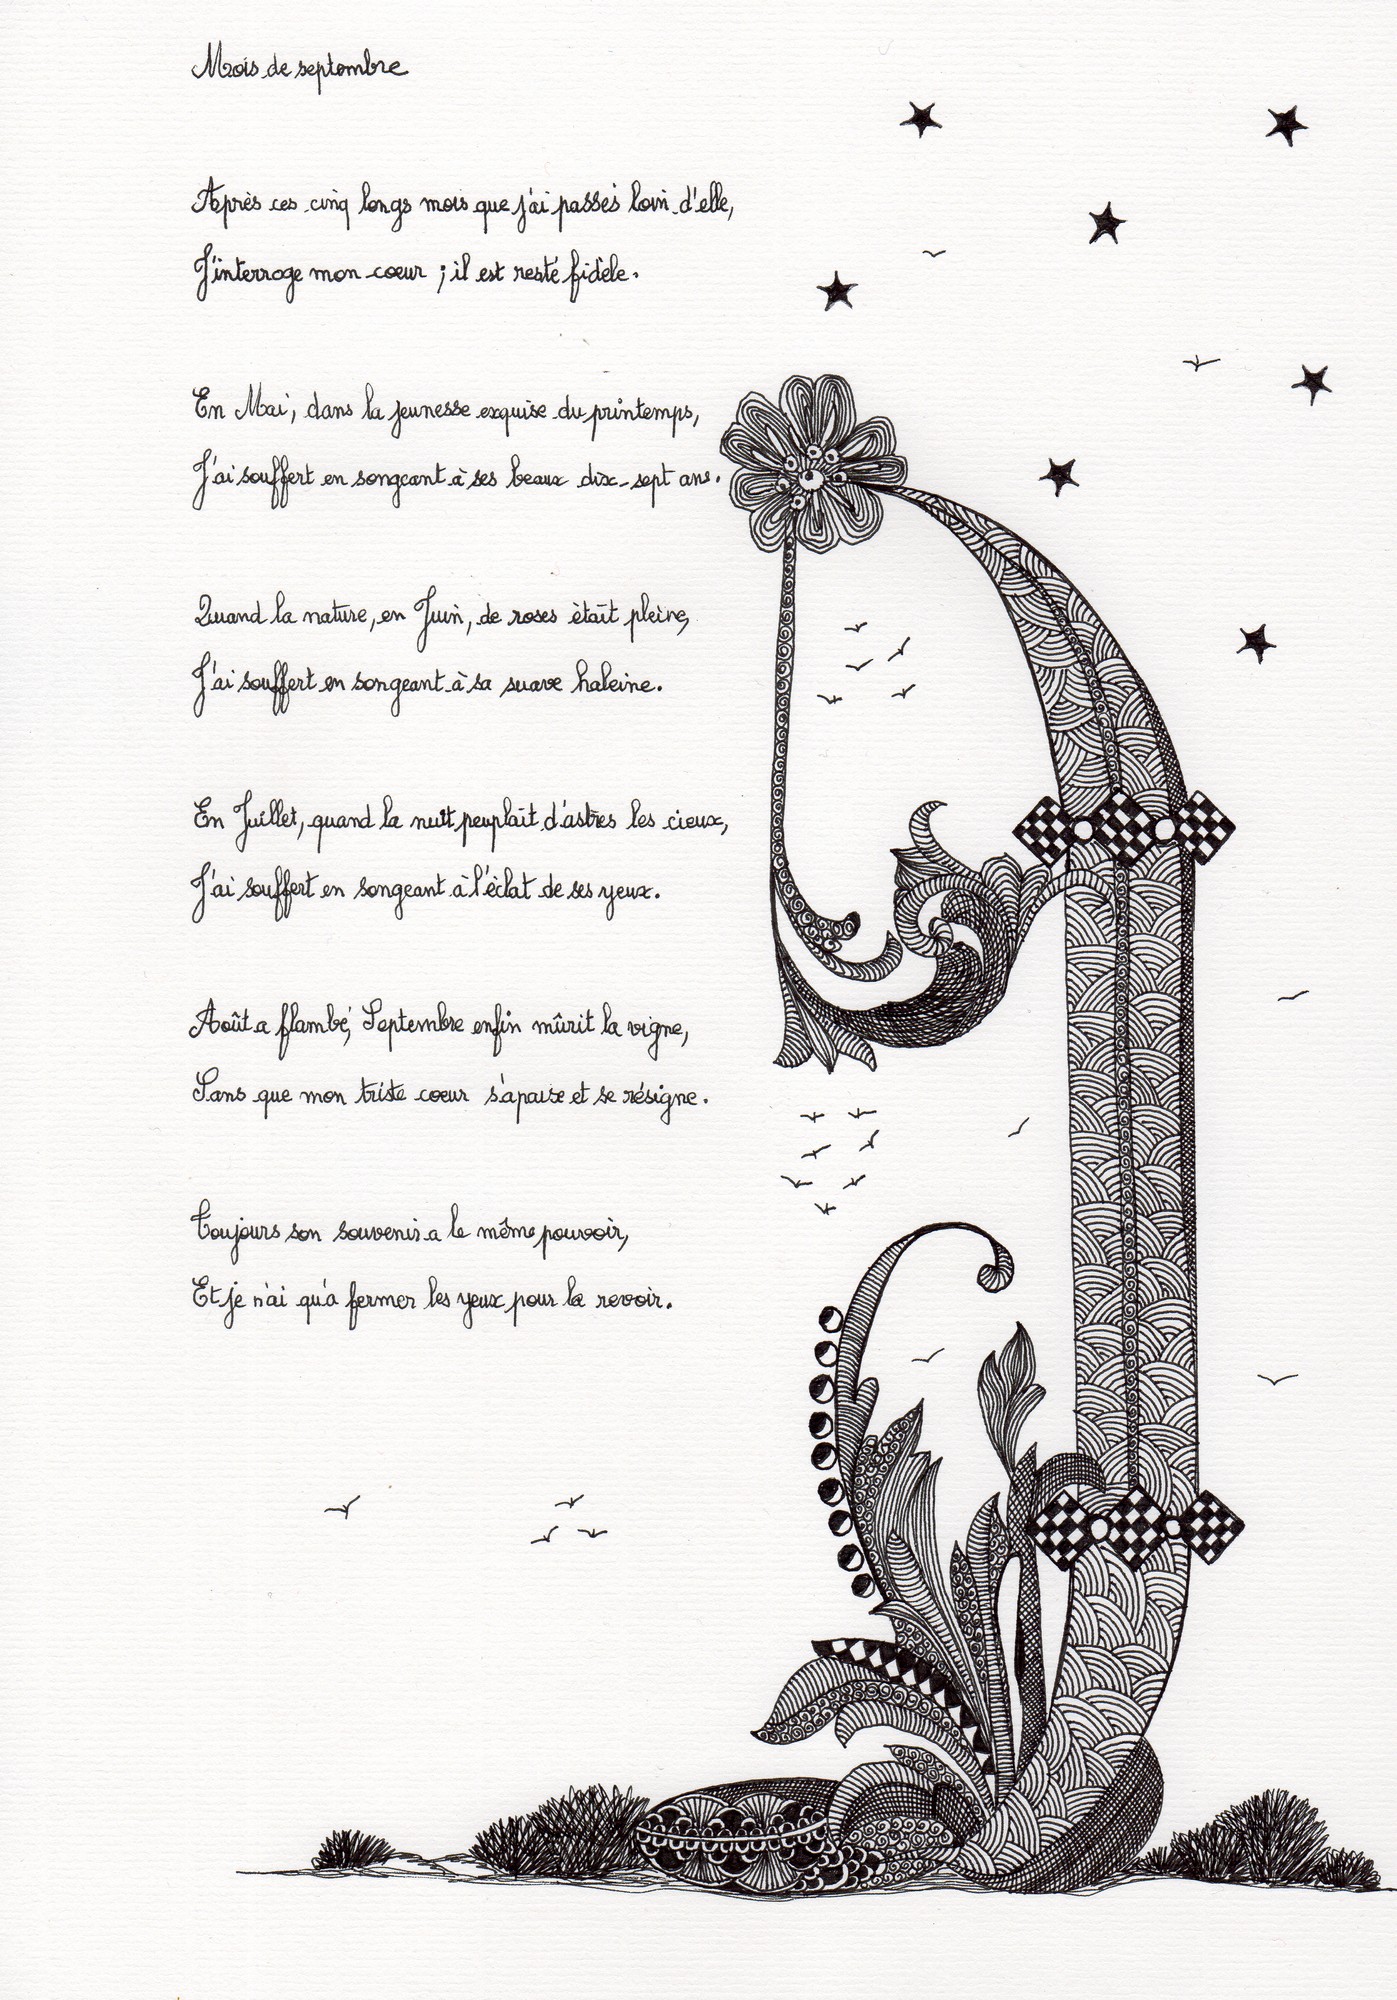 Mois de septembre
Après ces cinq longs mois que j'ai passés loin d'elle,
J'interroge mon coeur ; il est resté fidèle.
En Mai, dans la jeunesse exquise du printemps,
J'ai souffert en songeant à ses beaux dix-sept ans.
Quand la nature, en Juin, de roses était pleine,
J'ai souffert en songeant à sa suave haleine.
En Juillet, quand la nuit peuplait d'astres les cieux,
J'ai souffert en songeant à l'éclat de ses yeux.
Août a flambé, Septembre enfin mûrit la vigne,
Sans que mon triste coeur s'apaise et se résigne.
Toujours son souvenir a le même pouvoir,
Et je n'ai qu'à fermer les yeux pour la revoir.